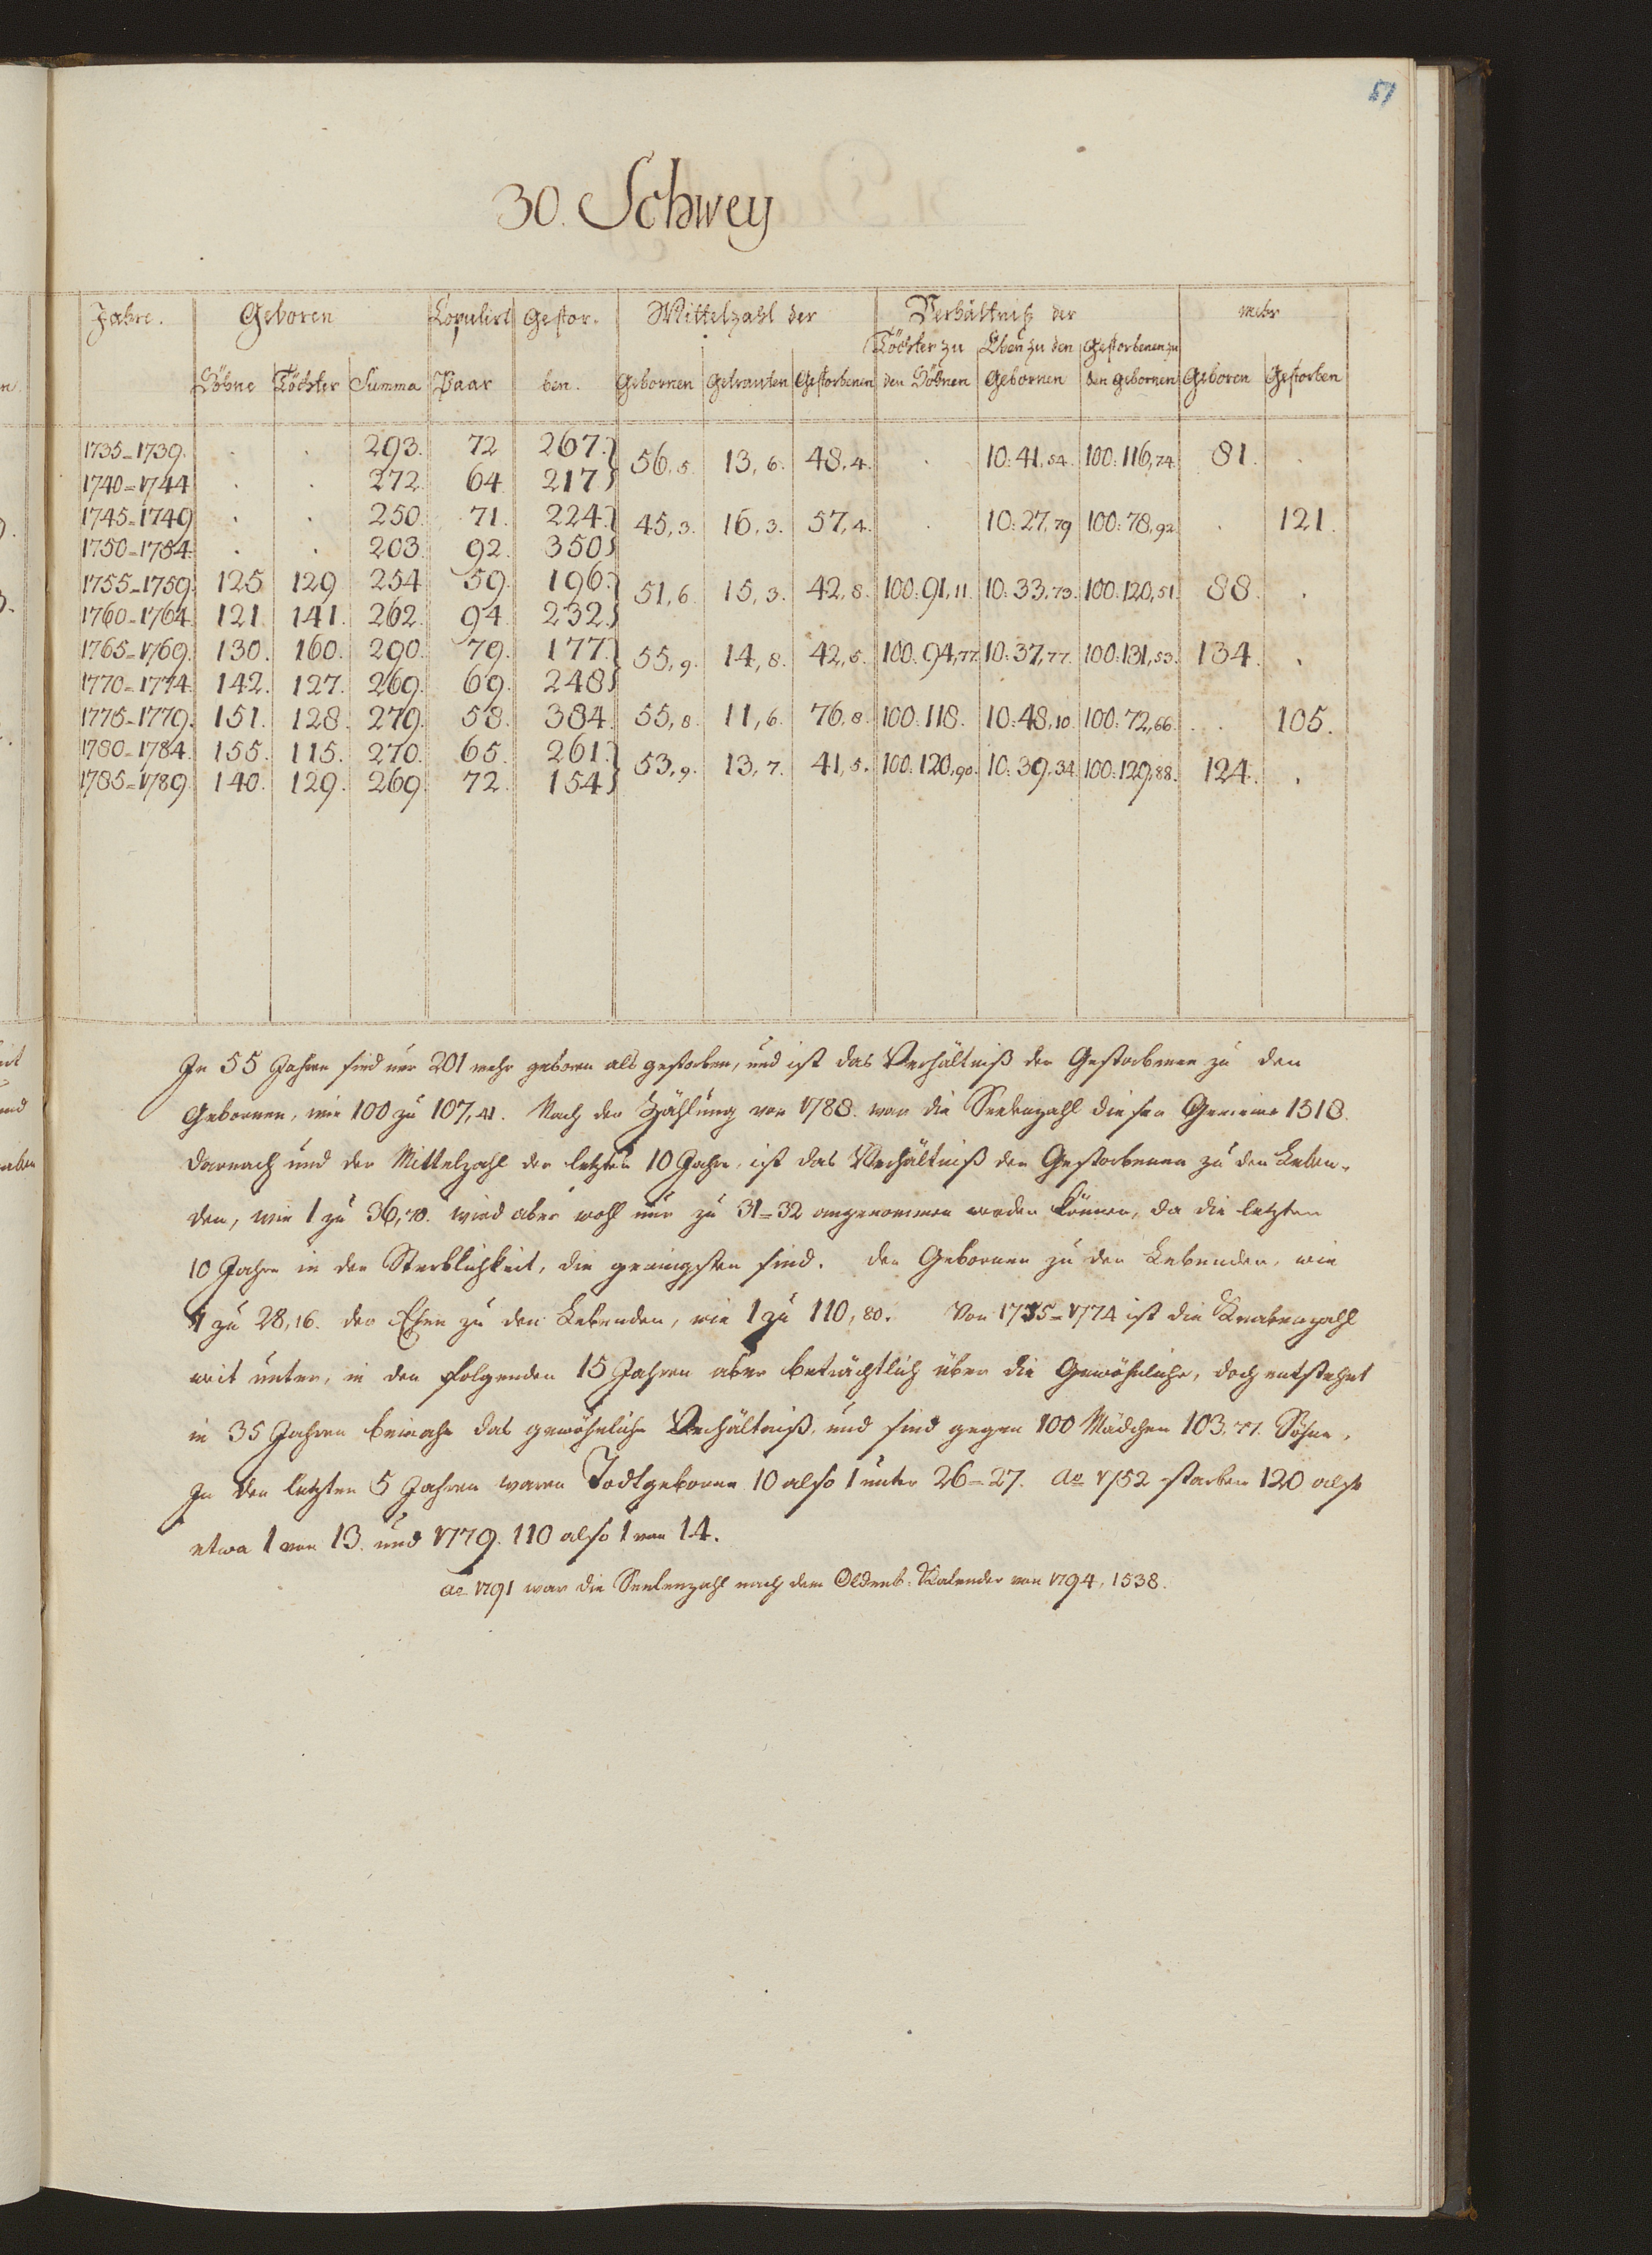 51
30. Schwey
Jahre. Geboren Kopulirt Gestor- Mittelzahl der Verhältniß der mehr
Töchter zu Ehen zu den Gestorbenen zu
Söhne Töchter Summa Paar ben. Gebornen Getrauten Gestorbenen den Söhnen Gebornen den gebornen Geboren Gestorben
1735-1739. . . 293. 72 267. 56,5. 13,6. 48,4. . 10:41,54. 100:116,74. 81. .
1740=1744 . . 272. 64. 217
1745=1749 . . 250. 71. 224. 45,3. 16,3. 57,4. . 10:27,79 100:78,92. . 121.
1750=1754. . . 203. 92. 350
1755-1759. 125 129 254 59. 196. 51,6. 15,3. 42,8. 100:91,11. 10:33,73. 100:120,51. 88. .
1760=1764. 121. 141. 262. 94. 232.
1765=1769. 130. 160. 290. 79. 177. 55,9. 14,8. 42,5. 100:94,77. 10:37,77. 100:131,53. 134. .
1770=1774. 142. 127. 269. 69. 248
1775-1779. 151. 128. 279. 58. 384. 55,8. 11,6. 76,8. 100:118. 10:48,10. 100:72,66. . 105.
1780=1784. 155. 115. 270. 65. 261. 53,9. 13,7. 41,5. 100:120,90. 10:39,34. 100:129,88. 124. .
1785=1789. 140. 129. 269. 72. 154
In 55 Jahren sind nur 201 mehr geboren als gestorben, und ist das Verhältniß der Gestorbenen zu den
Gebornen, wie 100 zu 107,41. Nach der Zählung von 1788. war die Seelenzahl dieser Gemeine 1518.
darnach und der Mittelzahl der letzten 10 Jahre, ist das Verhältniß der Gestorbenen zu den Leben-
den, wie 1 zu 36,70. wird aber wohl nur zu 31=32 angenommen werden können, da die letzten
10 Jahre in der Sterblichkeit, die geringsten sind. der Gebornen zu den Lebenden, wie
1 zu 28,16. der Ehen zu den Lebenden, wie 1 zu 110,80. Von 1755=1774 ist die Knabenzahl
weit unter, in den folgenden 15 Jahren aber beträchtlich über die Gewöhnliche, doch entstehet
in 35 Jahren beinahe das gewöhnliche Verhältniß, und sind gegen 100 Mädchen 103,77. Söhne.
In den letzten 5 Jahren waren Todtgeborne 10 also 1 unter 26=27. Ao 1752 starben 120 also
etwa 1 von 13. und 1779. 110 also 1 von 14.
Ao 1791 war die Seelenzahl nach dem Oldenb: Kalender von 1794, 1538.